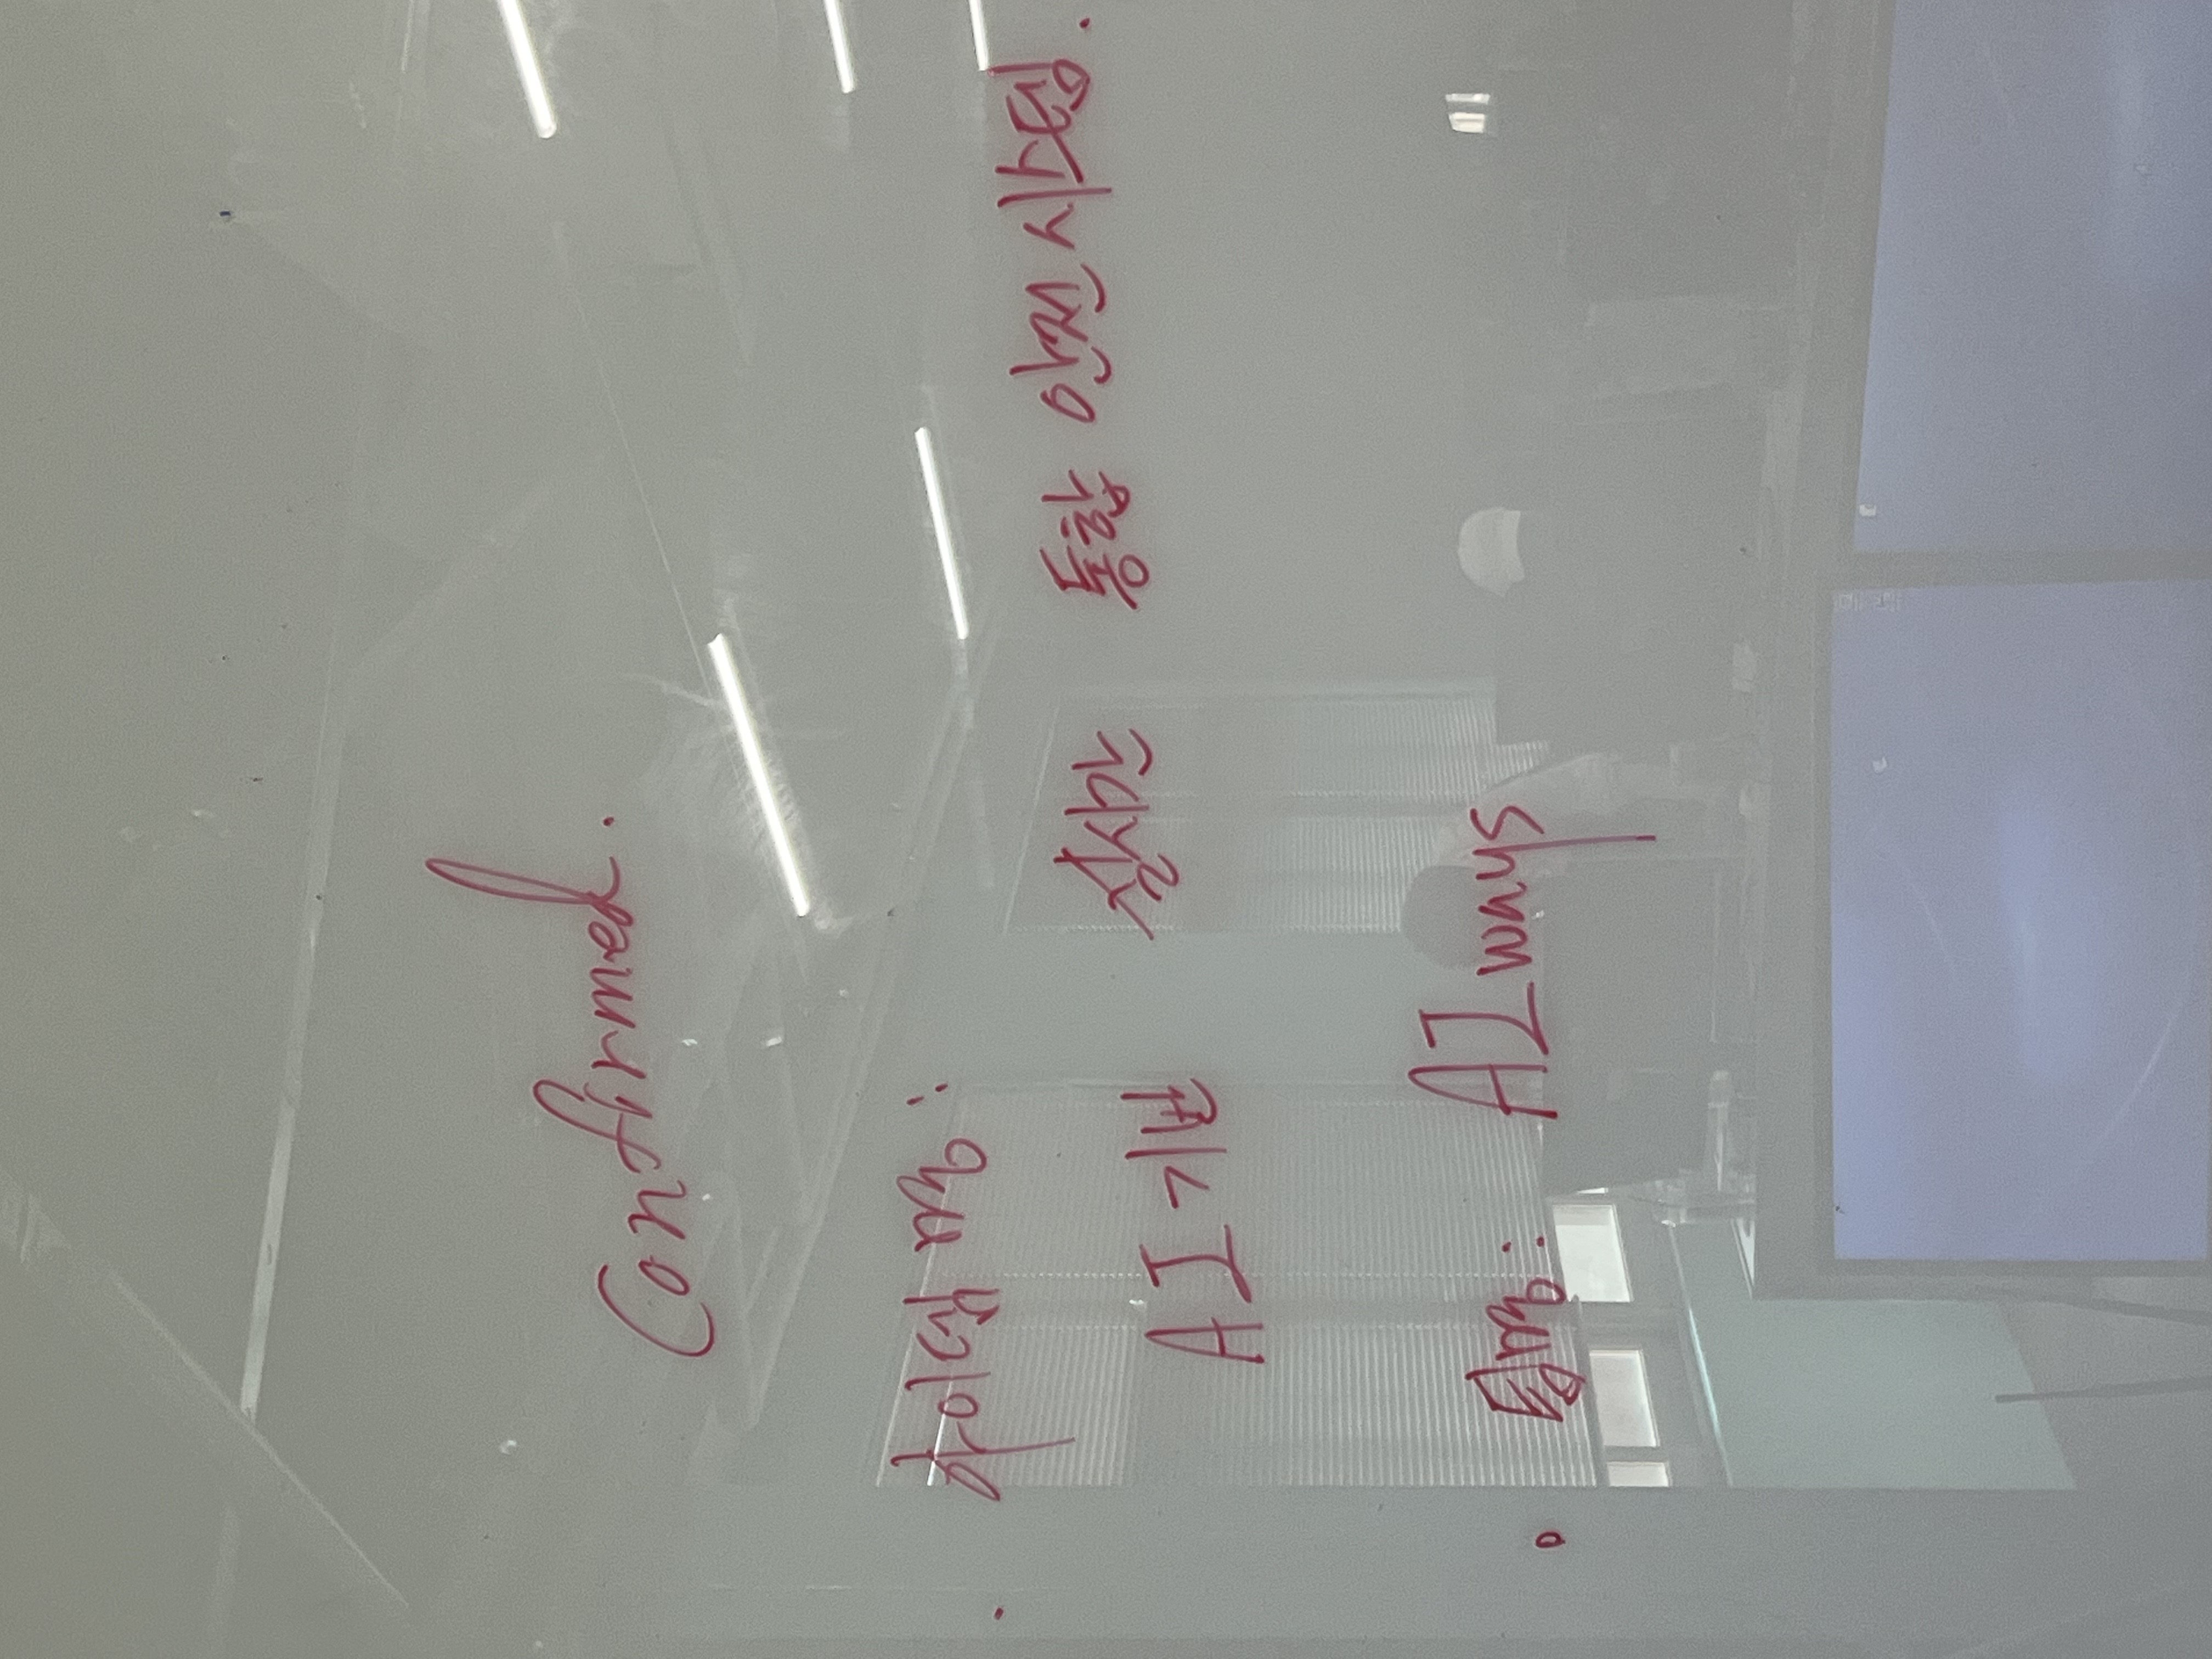 Confirmed.
· 아이템 명 :
AI 기반 실시간 통합 안전 시스템.
· 팀명 : AIways